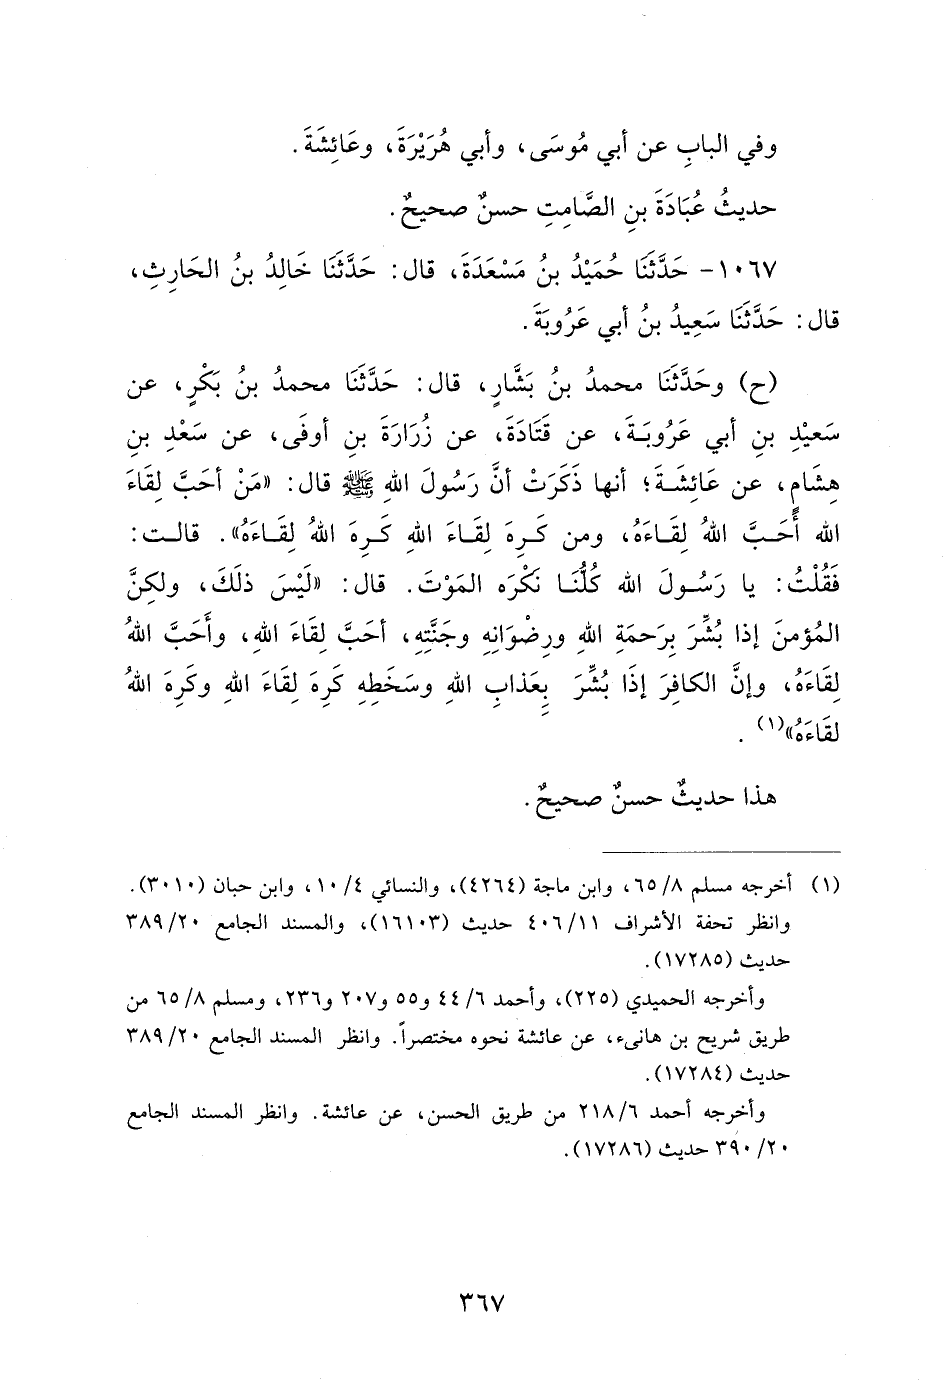 وفي البابِ عن أبي مُوسَى، وأبي هُرَيْرَةَ، وعَائِشَةَ.
حديثُ عُبَادَةَ بنِ الصَّامِتِ حسنٌ صحيحٌ.
١٠٦٧- حَدَّثَنَا حُمَيْدُ بنُ مَسْعَدَةَ، قال: حَدَّثَنَا خَالِدُ بنُ الحَارِثِ،
قال: حَدَّثَنَا سَعِيدُ بنُ أبي عَرُوبَةَ.
(ح) وحَدَّثَنَا محمدُ بنُ بَشَّارٍ، قال: حَدَّثَنَا محمدُ بنُ بَكْرٍ، عن
سَعيْدِ بنِ أبي عَرُوبَةَ، عن قَتَادَةَ، عن زُرَارَةَ بنِ أوفَى، عن سَعْدِ بنِ
هِشَامٍ، عن عَائِشَةَ؛ أنها ذَكَرَتْ أنَّ رَسُولَ اللهِ ﷺ قال: «مَنْ أحَبَّ لِقَاءَ
الله أَحَبَّ اللهُ لِقَاءَهُ، ومن كَرِهَ لِقَاءَ اللهِ كَرِهَ اللهُ لِقَاءَهُ». قالت:
فَقُلْتُ: يا رَسُولَ الله كُلُّنَا نَكْرَه المَوْتَ. قال: «لَيْسَ ذلَكَ، ولكِنَّ
المُؤمنَ إذا بُشِّرَ بِرَحمَةِ اللهِ ورِضْوَانِهِ وجَنَّتِهِ، أحَبَّ لِقَاءَ اللهِ، وأَحَبَّ اللهُ
لِقَاءَهُ، وإنَّ الكافِرَ إذَا بُشِّرَ بِعَذابِ اللهِ وسَخَطِهِ كَرِهَ لِقَاءَ اللهِ وكَرِهَ اللهُ
لقَاءَهُ»(١) .
هذا حديثٌ حسنٌ صحيحٌ.
(١) أخرجه مسلم ٦٥/٨، وابن ماجة (٤٢٦٤)، والنسائي ١٠/٤، وابن حبان (٣٠١٠).
وانظر تحفة الأشراف ٤٠٦/١١ حديث (١٦١٠٣)، والمسند الجامع ٣٨٩/٢٠
حديث (١٧٢٨٥).
وأخرجه الحميدي (٢٢٥)، وأحمد ٤٤/٦ و٥٥ و٢٠٧ و٢٣٦، ومسلم ٦٥/٨ من
طريق شريح بن هانىء، عن عائشة نحوه مختصراً. وانظر المسند الجامع ٣٨٩/٢٠
حديث (١٧٢٨٤).
وأخرجه أحمد ٢١٨/٦ من طريق الحسن، عن عائشة. وانظر المسند الجامع
٣٩٠/٢٠ حديث (١٧٢٨٦).
٣٦٧